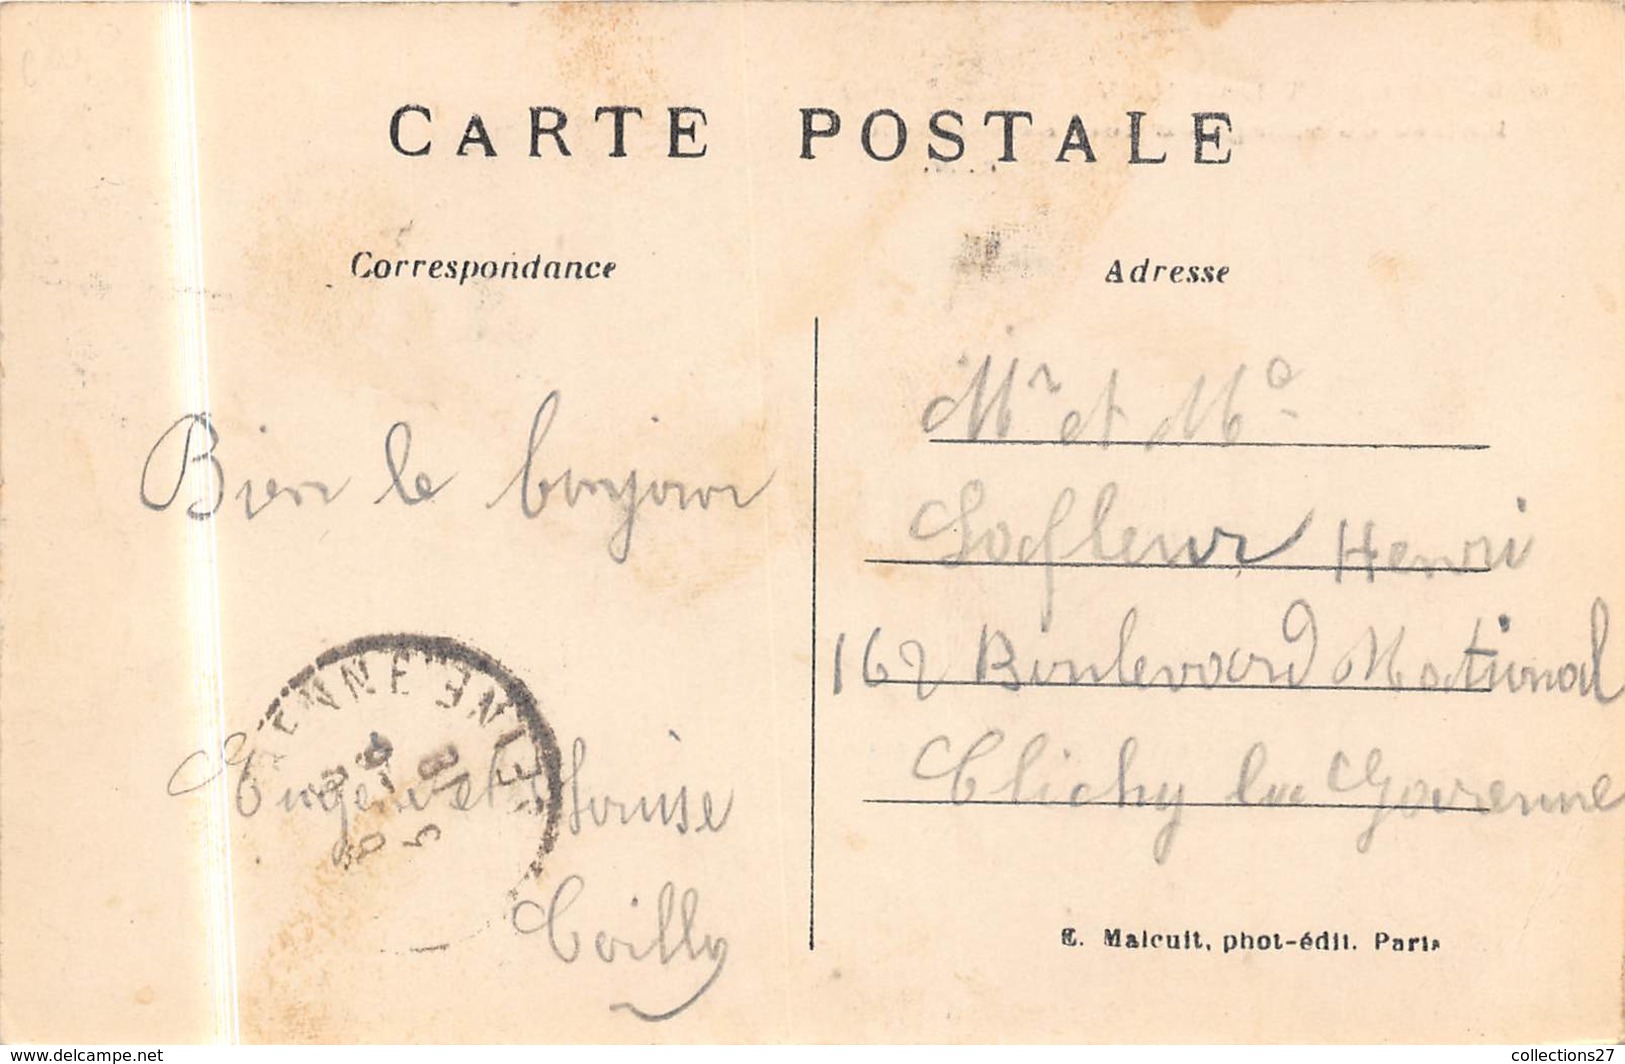 CARTE POSTALE
Correspondance
Adresse
Bien le bonjour
Eugene et Louise
Coilly
Mr et Me
Lafleur Henri
162 Boulevard National
Clichy la Garenne
E. Malcuit, phot-édit. Paris
www.delcampe.net
collections27